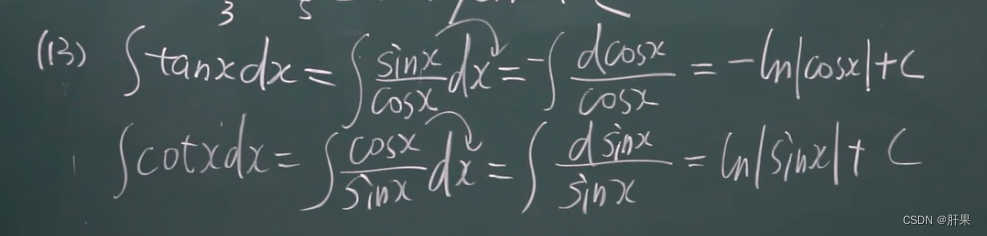 3 5
(13) ∫tanxdx = ∫ sinx/cosx dx = -∫ dcosx/cosx = -ln|cosx|+C
∫cotxdx = ∫ cosx/sinx dx = ∫ d sinx/sinx = ln|sinx|+ C
CSDN @肝果